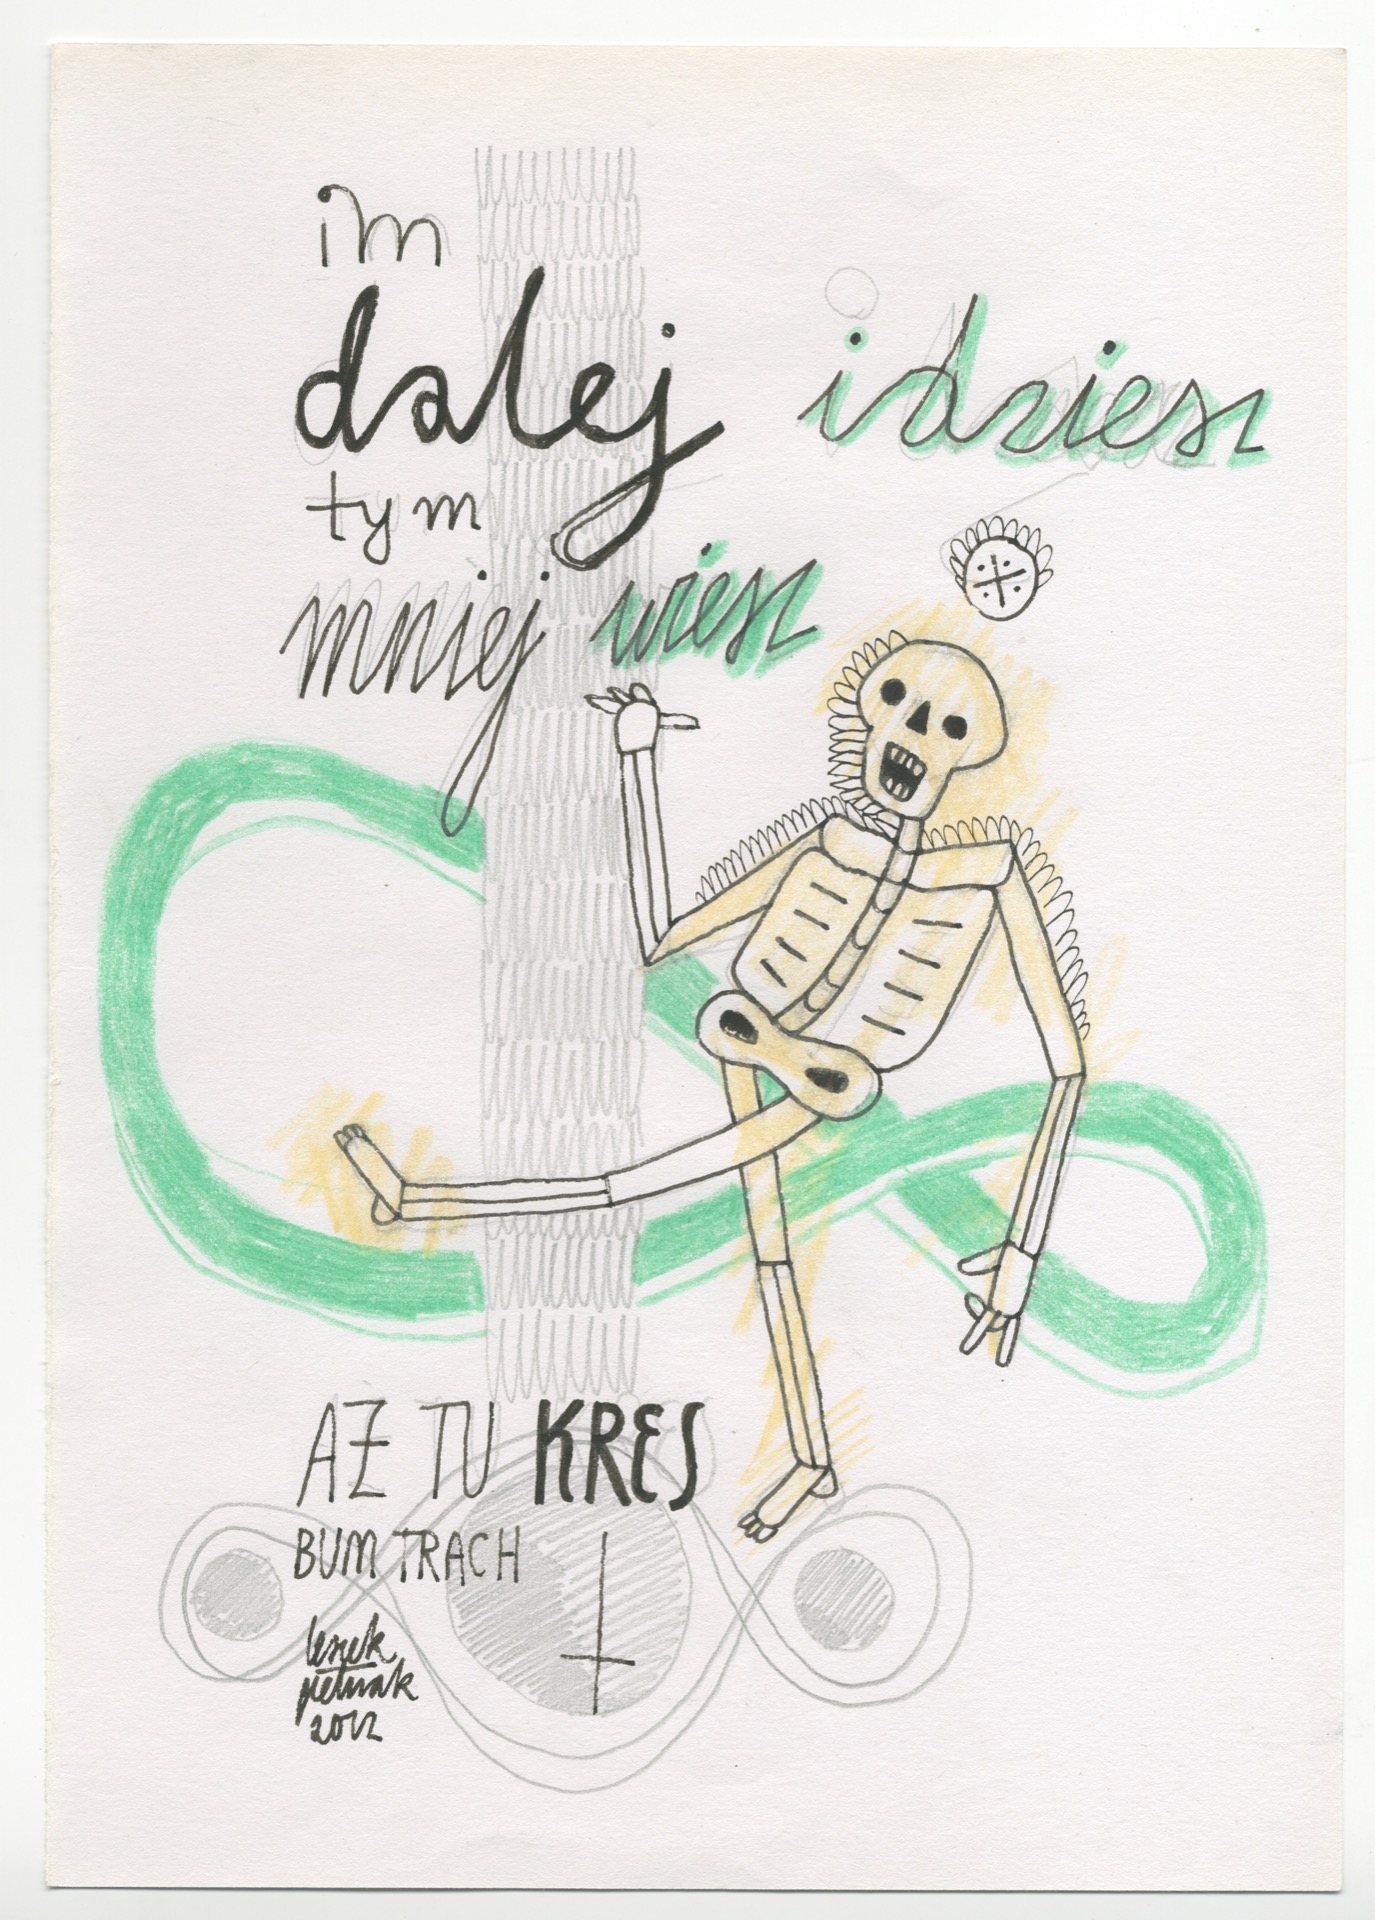 im
dalej idziesz
tym
mniej wiesz
AŻ TU KRES
BUM TRACH
leszek
petnak
2012